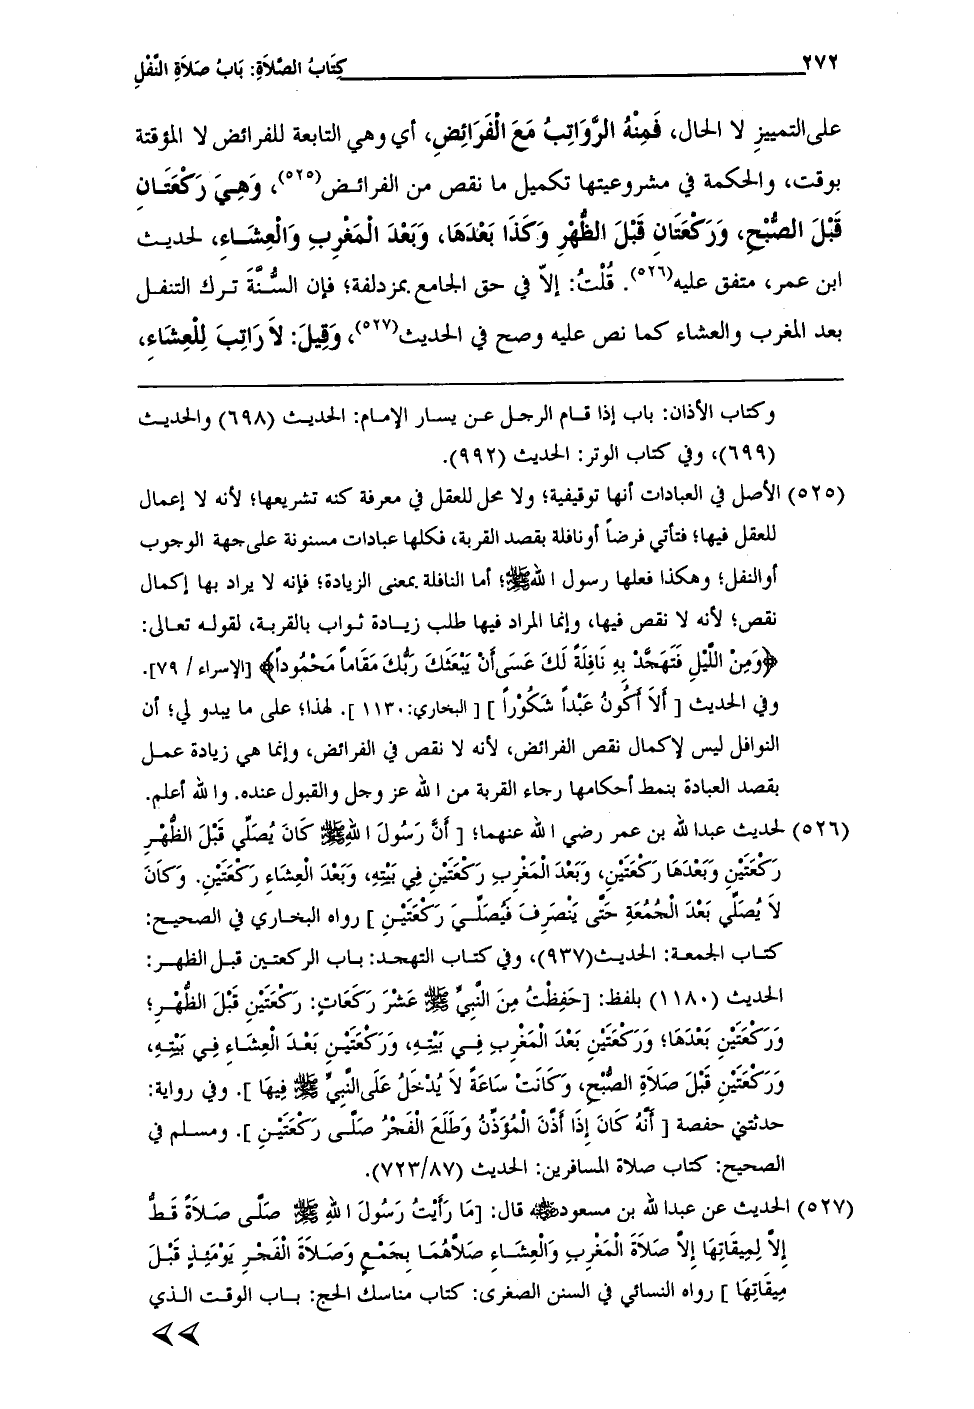 ٢٧٢ كِتَابُ الصَّلاَةِ: بَابُ صَلاَةِ النَّفْلِ
على التمييز لا الحال، فَمِنْهُ الرَّوَاتِبُ مَعَ الْفَرَائِضِ، أي وهي التابعة للفرائض لا المؤقتة
بوقت، والحكمة في مشروعيتها تكميل ما نقص من الفرائض(٥٢٥)، وَهِيَ رَكْعَتَانِ
قَبْلَ الصُّبْحِ، وَرَكْعَتَانِ قَبْلَ الظُّهْرِ وَكَذَا بَعْدَهَا، وَبَعْدَ الْمَغْرِبِ وَالْعِشَاءِ، لحديث
ابن عمر، متفق عليه(٥٢٦). قُلْتُ: إلاّ في حق الجامع بمزدلفة؛ فإن السُّنَّةَ ترك التنفل
بعد المغرب والعشاء كما نص عليه وصح في الحديث(٥٢٧)، وَقِيلَ: لاَ رَاتِبَ لِلْعِشَاءِ،
وكتاب الأذان: باب إذا قام الرجل عن يسار الإمام: الحديث (٦٩٨) والحديث
(٦٩٩)، وفي كتاب الوتر: الحديث (٩٩٢).
(٥٢٥) الأصل في العبادات أنها توقيفية؛ ولا محل للعقل في معرفة كنه تشريعها؛ لأنه لا إعمال
للعقل فيها؛ فتأتي فرضاً أونافلة بقصد القربة، فكلها عبادات مسنونة على جهة الوجوب
أوالنفل؛ وهكذا فعلها رسول الله ﷺ؛ أما النافلة بمعنى الزيادة؛ فإنه لا يراد بها إكمال
نقص؛ لأنه لا نقص فيها، وإنما المراد فيها طلب زيادة ثواب بالقربة، لقوله تعالى:
﴿وَمِنْ اللَّيْلِ فَتَهَجَّدْ بِهِ نَافِلَةً لَكَ عَسَى أَنْ يَبْعَثَكَ رَبُّكَ مَقَاماً مَحْمُوداً﴾ [الإسراء / ٧٩].
وفي الحديث [ أَلاَ أَكُونُ عَبْداً شَكُوْراً ] [ البخاري: ١١٣٠ ]. لهذا؛ على ما يبدو لي؛ أن
النوافل ليس لإكمال نقص الفرائض، لأنه لا نقص في الفرائض، وإنما هي زيادة عمل
بقصد العبادة بنمط أحكامها رجاء القربة من الله عز وجل والقبول عنده. والله أعلم.
(٥٢٦) لحديث عبدالله بن عمر رضي الله عنهما؛ [ أَنَّ رَسُولَ اللهِ ﷺ كَانَ يُصَلِّي قَبْلَ الظُّهْرِ
رَكْعَتَيْنِ وَبَعْدَهَا رَكْعَتَيْنِ، وَبَعْدَ الْمَغْرِبِ رَكْعَتَيْنِ فِي بَيْتِهِ، وَبَعْدَ الْعِشَاءِ رَكْعَتَيْنِ. وَكَانَ
لاَ يُصَلِّي بَعْدَ الْجُمُعَةِ حَتَّى يَنْصَرِفَ فَيُصَلِّيَ رَكْعَتَيْنِ ] رواه البخاري في الصحيح:
كتاب الجمعة: الحديث(٩٣٧)، وفي كتاب التهجد: باب الركعتين قبل الظهر:
الحديث (١١٨٠) بلفظ: [حَفِظْتُ مِنَ النَّبِيِّ ﷺ عَشْرَ رَكَعَاتٍ: رَكْعَتَيْنِ قَبْلَ الظُّهْرِ؛
وَرَكْعَتَيْنِ بَعْدَهَا؛ وَرَكْعَتَيْنِ بَعْدَ الْمَغْرِبِ فِي بَيْتِهِ، وَرَكْعَتَيْنِ بَعْدَ الْعِشَاءِ فِي بَيْتِهِ،
وَرَكْعَتَيْنِ قَبْلَ صَلاَةِ الصُّبْحِ، وَكَانَتْ سَاعَةً لاَ يُدْخَلُ عَلَى النَّبِيِّ ﷺ فِيهَا ]. وفي رواية:
حدثتني حفصة [ أَنَّهُ كَانَ إِذَا أَذَّنَ الْمُؤَذِّنُ وَطَلَعَ الْفَجْرُ صَلَّى رَكْعَتَيْنِ ]. ومسلم في
الصحيح: كتاب صلاة المسافرين: الحديث (٧٢٣/٨٧).
(٥٢٧) الحديث عن عبدالله بن مسعود ﷺ قال: [مَا رَأَيْتُ رَسُولَ اللهِ ﷺ صَلَّى صَلاَةً قَطُّ
إِلاَّ لِمِيقَاتِهَا إِلاَّ صَلاَةَ الْمَغْرِبِ وَالْعِشَاءِ صَلاَّهُمَا بِجَمْعٍ وَصَلاَةَ الْفَجْرِ يَوْمَئِذٍ قَبْلَ
مِيقَاتِهَا ] رواه النسائي في السنن الصغرى: كتاب مناسك الحج: باب الوقت الذي